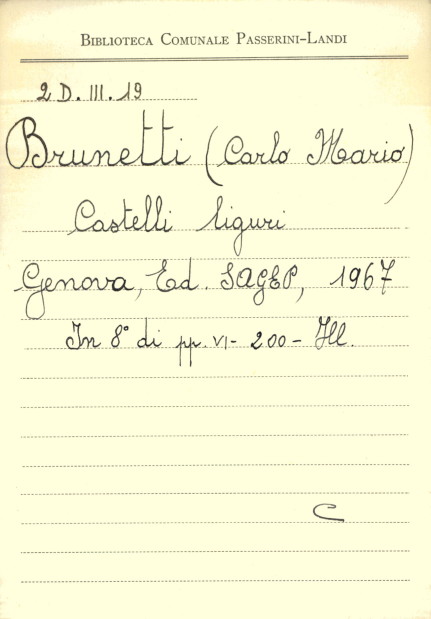 Biblioteca Comunale Passerini-Landi
2 D. III. 19
Brunetti (Carlo Mario)
Castelli liguri
Genova, Ed. SAGEP, 1967
In 8° di pp. VI- 200 - Ill.
C